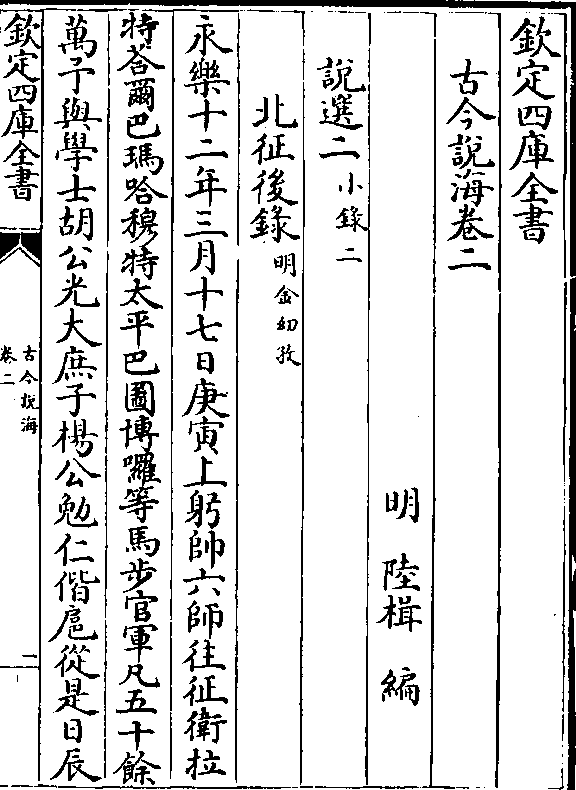 欽定四庫全書
古今說海卷二
明 陸楫 編
說選二 小錄二
北征後錄 明金幼孜
永樂十二年三月十七日庚寅上躬帥六師往征衛拉
特荅爾巴瑪哈穆特太平巴圖博囉等馬步官軍凡五十餘
萬予與學士胡公光大庶子楊公勉仁偕扈從是日辰
欽定四庫全書
古今說海
卷二
一